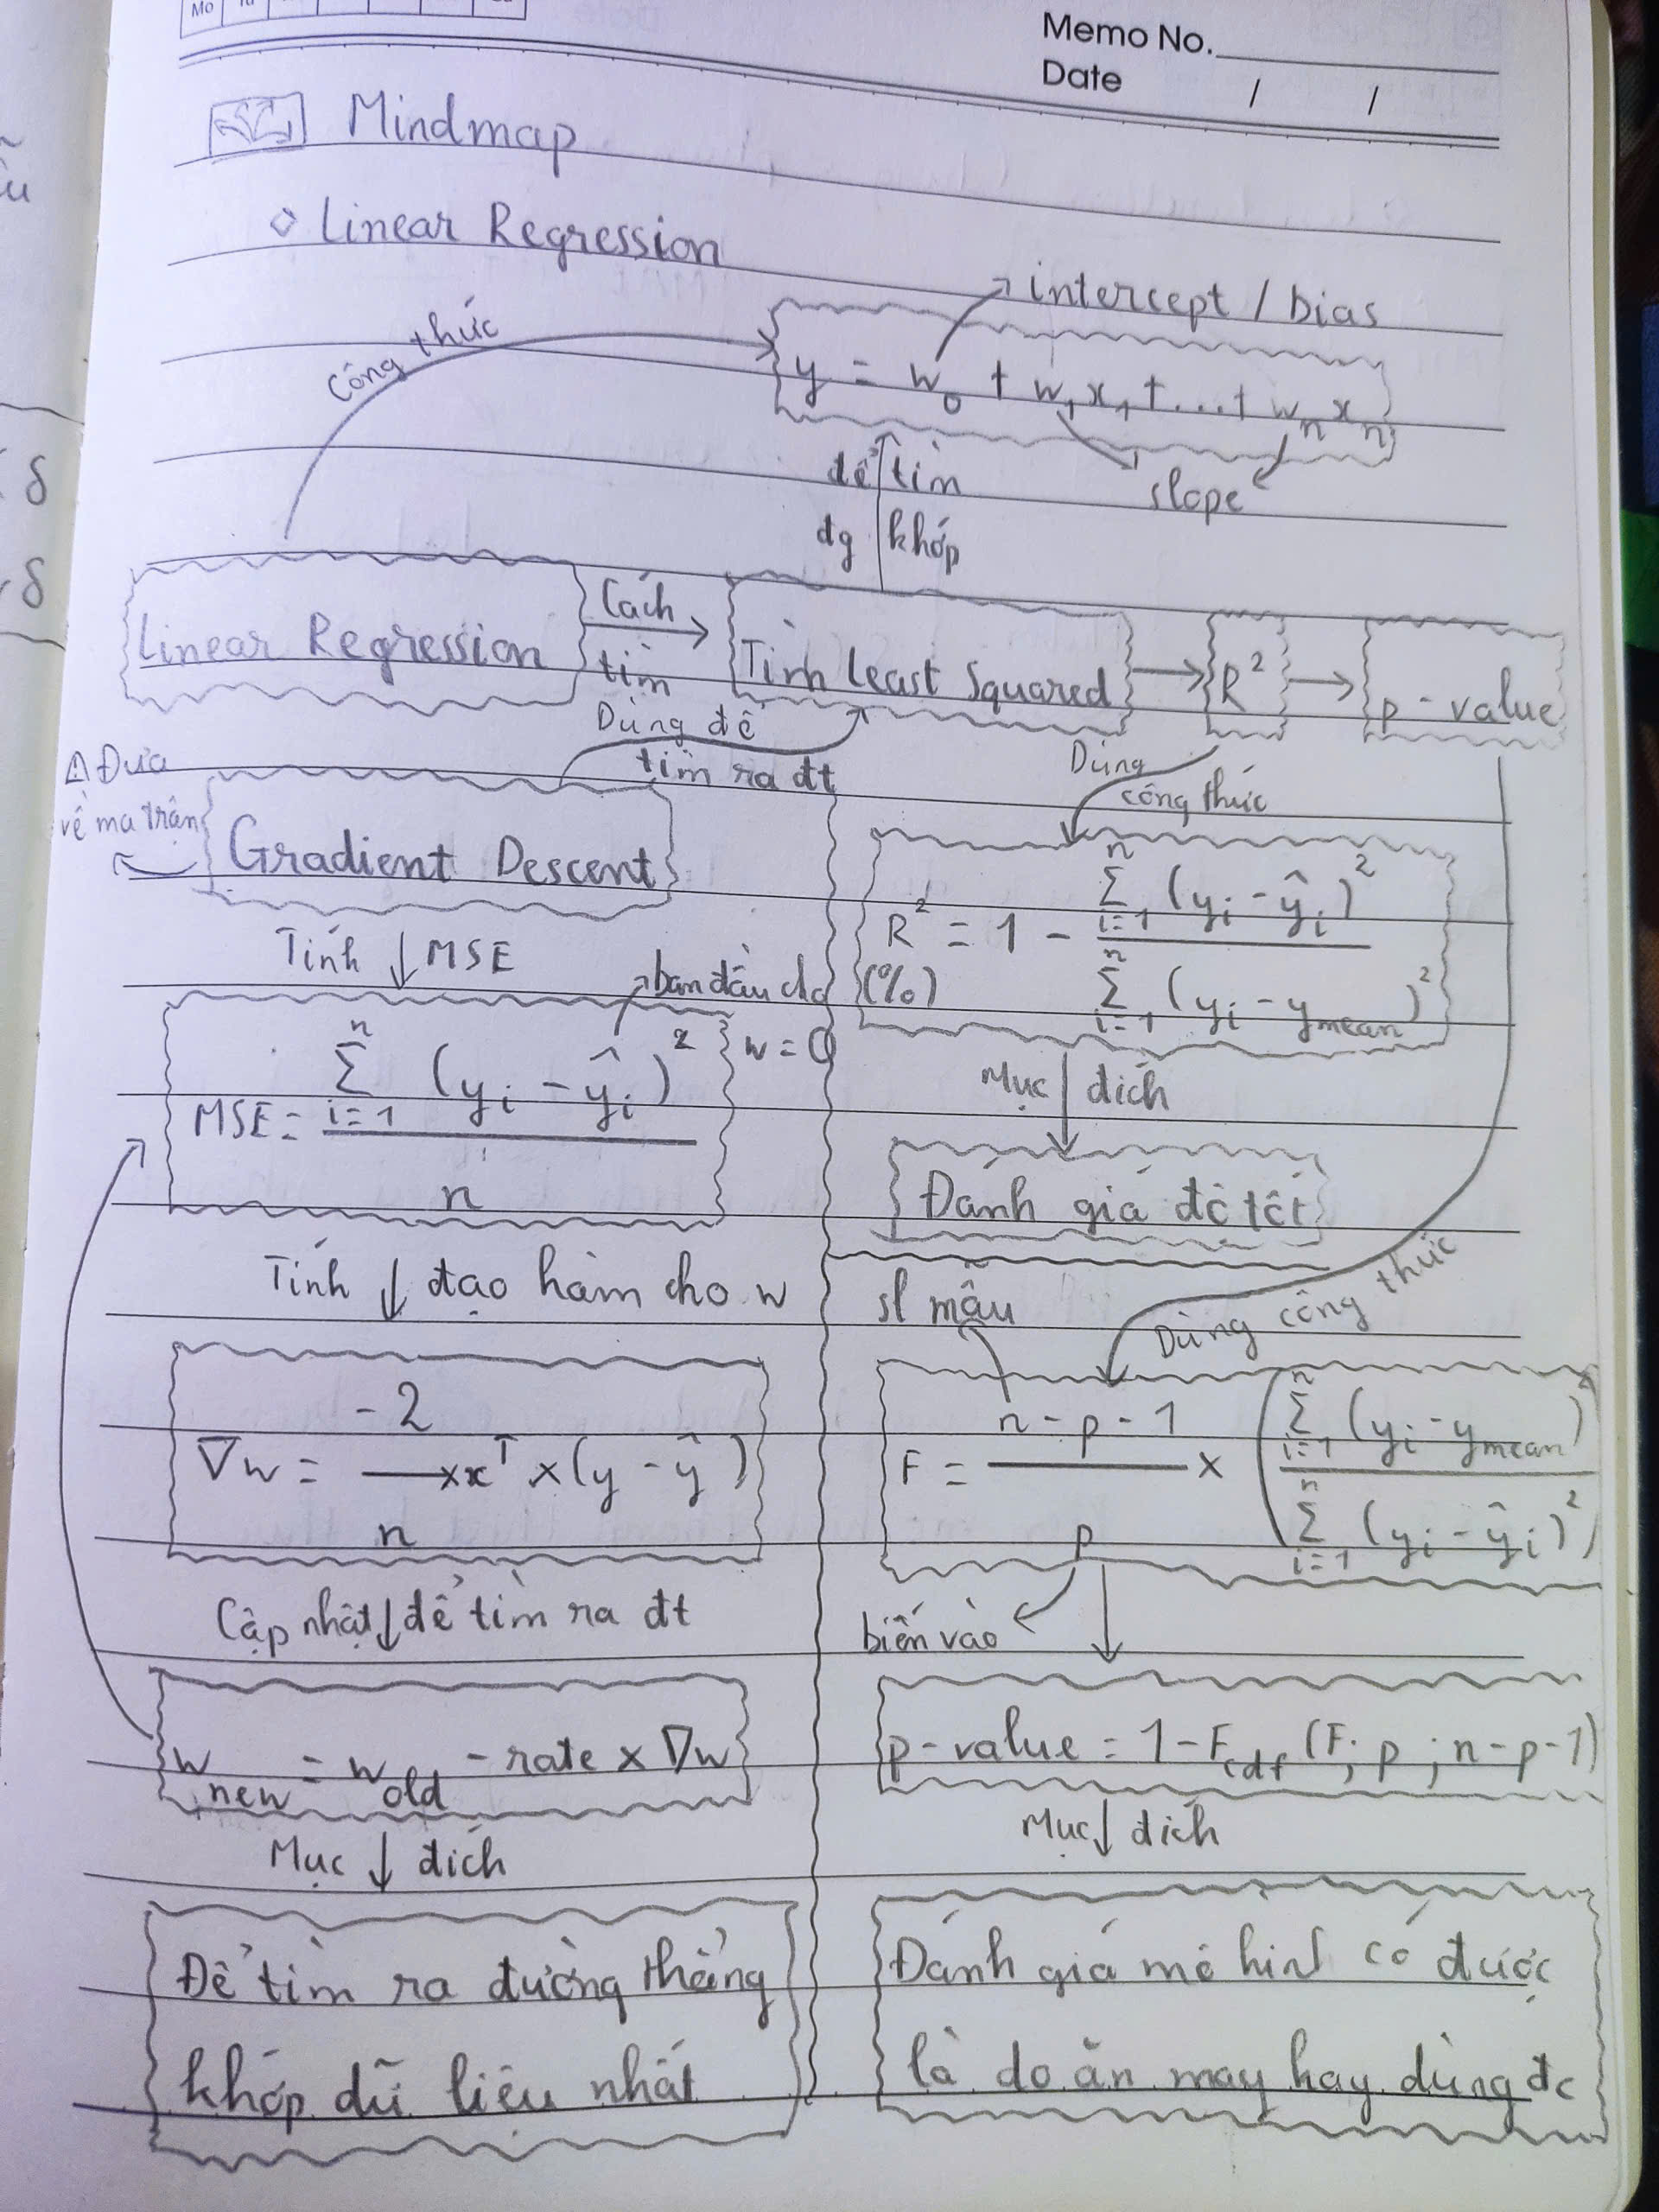 Mo Tu
Memo No.
Date / /
Mindmap
◇ Linear Regression
intercept / bias
Công thức
y = w₀ + w₁x₁ + ... + wₙxₙ
slope
để tìm
đg khớp
Linear Regression
Cách
tìm
Tìm Least Squared
R²
p-value
Dùng để
tìm ra đt
Dùng
công thức
⚠ Đưa
về ma trận
Gradient Descent
Tính ↓ MSE
ban đầu cho
w = 0
MSE = Σⁿᵢ₌₁ (yᵢ - ŷᵢ)² / n
Tính ↓ đạo hàm cho w
∇w = -2/n × xᵀ × (y - ŷ)
Cập nhật ↓ để tìm ra đt
w_new = w_old - rate × ∇w
Mục ↓ đích
Để tìm ra đường thẳng
khớp dữ liệu nhất
R² = 1 - Σⁿᵢ₌₁ (yᵢ - ŷᵢ)² / Σⁿᵢ₌₁ (yᵢ - y_mean)²
(%)
Mục ↓ đích
Đánh giá độ tốt
sl mẫu
Dùng công thức
F = (n - p - 1)/p × ( Σⁿᵢ₌₁ (yᵢ - y_mean)² / Σⁿᵢ₌₁ (yᵢ - ŷᵢ)² )
biến vào
p-value = 1 - F_cdf (F; p; n-p-1)
Mục ↓ đích
Đánh giá mô hình có được
là do ăn may hay dùng đc